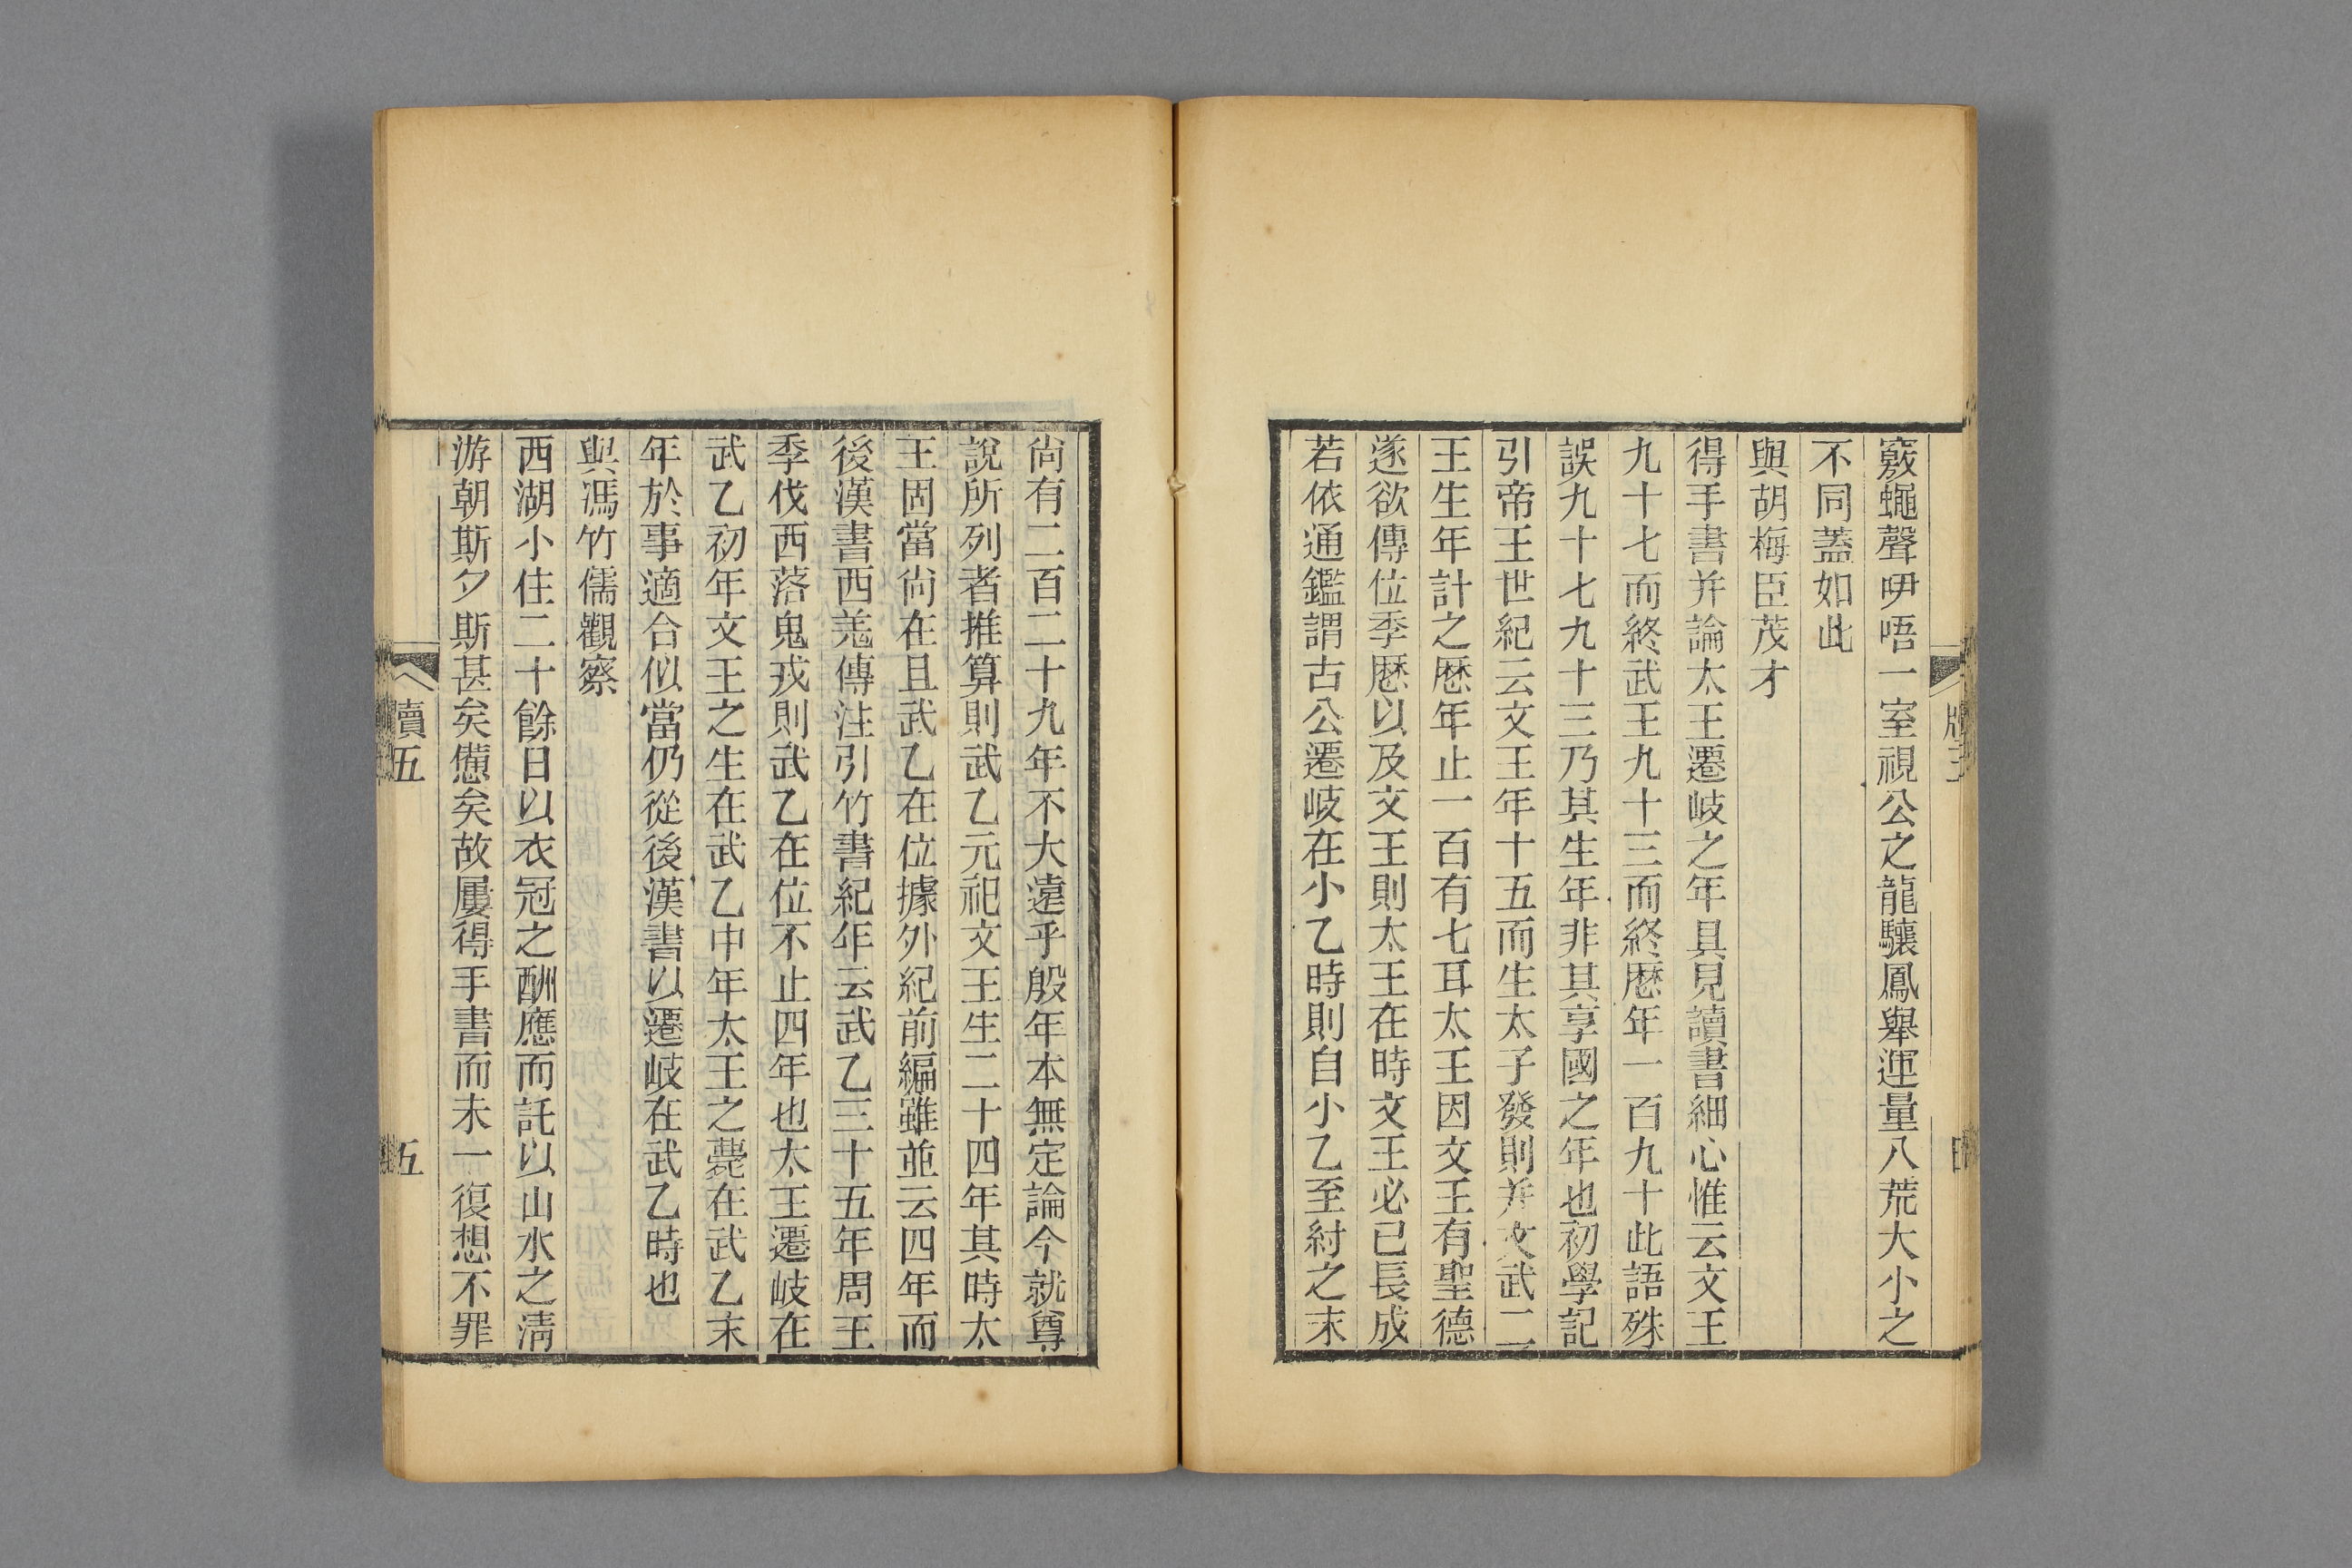 竅蠅聲吚唔一室視公之龍驤鳳舉運量八荒大小之
不同蓋如此
與胡梅臣茂才
得手書并論太王遷岐之年具見讀書細心惟云文王
九十七而終武王九十三而終歴年一百九十此語殊
誤九十七九十三乃其生年非其享國之年也初學記
引帝王世紀云文王年十五而生太子發則并文武二
王生年計之歴年止一百有七耳太王因文王有聖德
遂欲傳位季歴以及文王則太王在時文王必已長成
若依通鑑謂古公遷岐在小乙時則自小乙至紂之末
尙有二百二十九年不大遠乎殷年本無定論今就尊
說所列者推算則武乙元祀文王生二十四年其時太
王固當尙在且武乙在位據外紀前編雖並云四年而
後漢書西羌傳注引竹書紀年云武乙三十五年周王
季伐西落鬼戎則武乙在位不止四年也太王遷岐在
武乙初年文王之生在武乙中年太王之薨在武乙末
年於事適合似當仍從後漢書以遷岐在武乙時也
與馮竹儒觀察
西湖小住二十餘日以衣冠之酬應而託以山水之淸
游朝斯夕斯甚矣憊矣故屢得手書而未一復想不罪
牘五
五